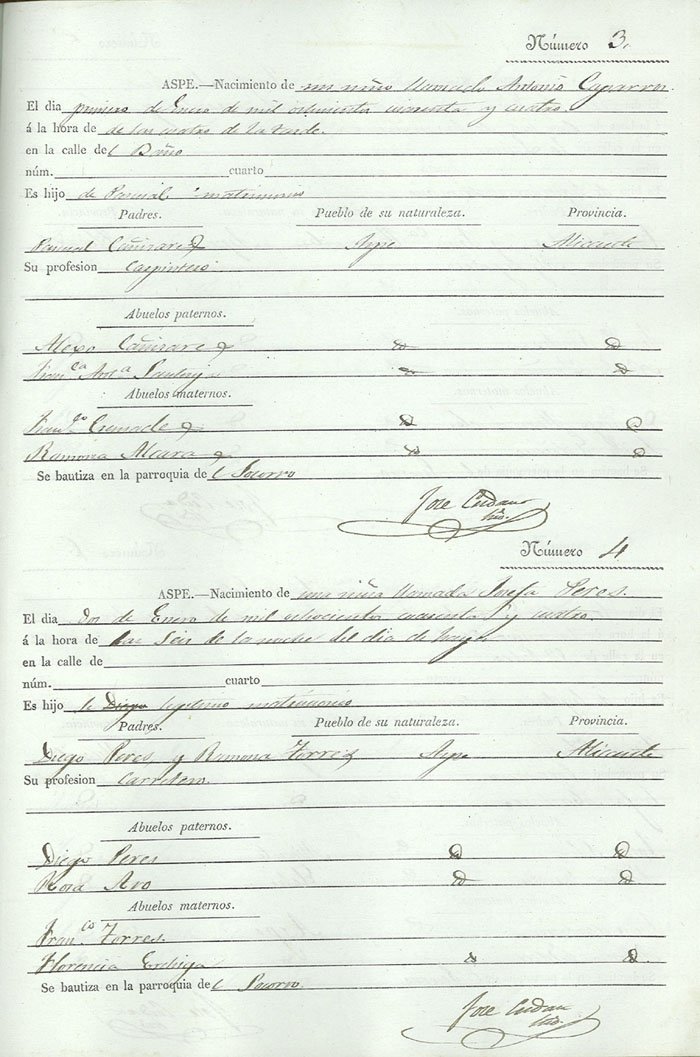 Número 3.
ASPE.—Nacimiento de un niño llamado Antonio
El dia primero de Enero de mil ochocientos cuarenta y cuatro
á la hora de de las cuatro de la tarde.
en la calle del Baño
núm. cuarto
Es hijo de matrimonio
Padres. Pueblo de su naturaleza. Provincia.
Pascual Cañizares Aspe Alicante
Su profesion Carpintero
Abuelos paternos.
Alexo Cañizares
Fran.ca
Abuelos maternos.
Fran.co Cremades
Ramona
Se bautiza en la parroquia del Socorro
Jose
Número 4
ASPE.—Nacimiento de una niña llamada Josefa Peres.
El dia dos de Enero de mil ochocientos cuarenta y cuatro
á la hora de las seis de la noche del dia de hoy
en la calle de
núm. cuarto
Es hijo de Diego legitimo matrimonio
Padres. Pueblo de su naturaleza. Provincia.
Diego Peres y Ramona Torres Aspe Alicante
Su profesion Carretero
Abuelos paternos.
Diego Peres
Rosa
Abuelos maternos.
Fran.co Torres.
Florencia
Se bautiza en la parroquia del Socorro
Jose